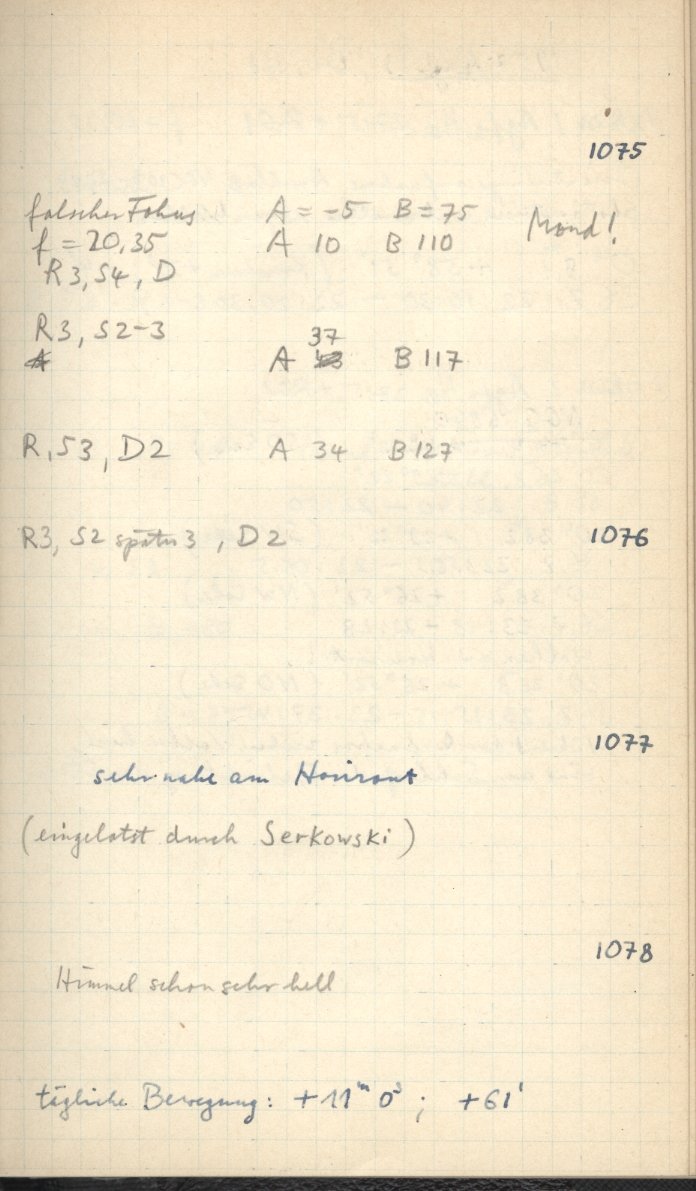 1075
falscher Fokus A = -5 B = 75 Mond!
f = 20,35 A 10 B 110
R3, S4, D
R3, S2-3 37
A B 117
R, S3, D2 A 34 B 127
R3, S2 später 3, D2 1076
1077
sehr nahe am Horizont
(eingelotst durch Serkowski)
1078
Himmel schon sehr hell
tägliche Bewegung: +11ᵐ 0ˢ ; +61'